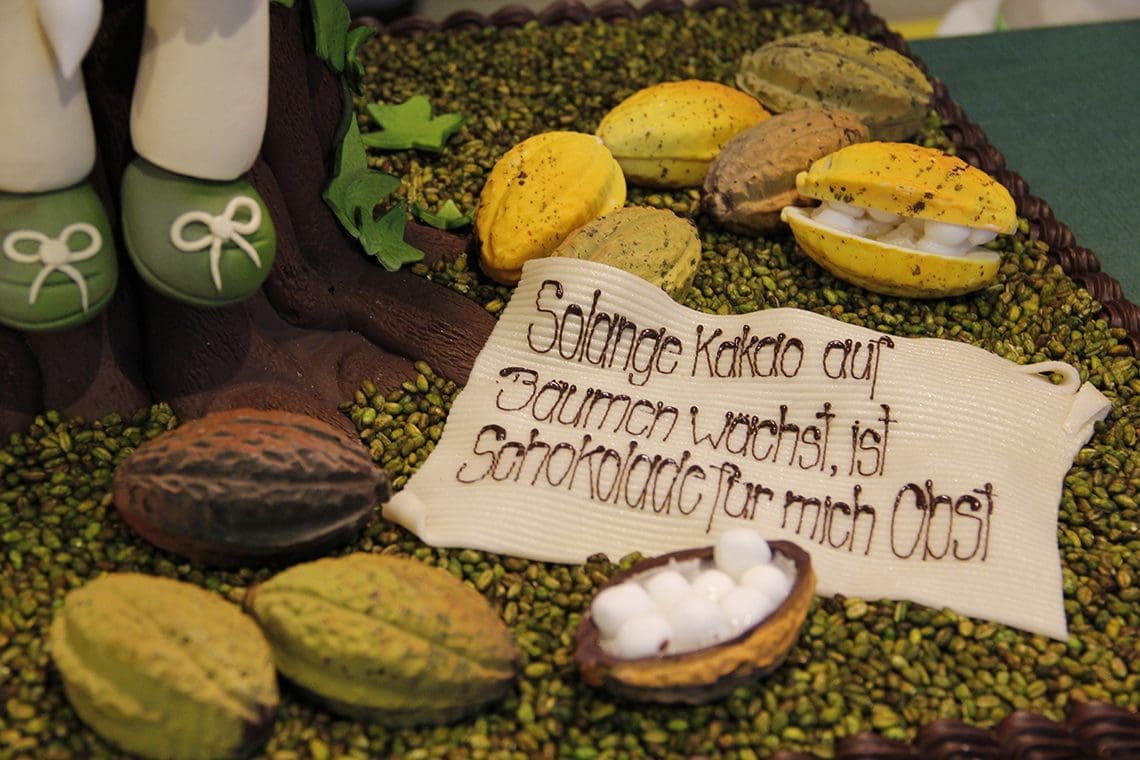 Solange Kakao auf
Bäumen wächst, ist
Schokolade für mich Obst